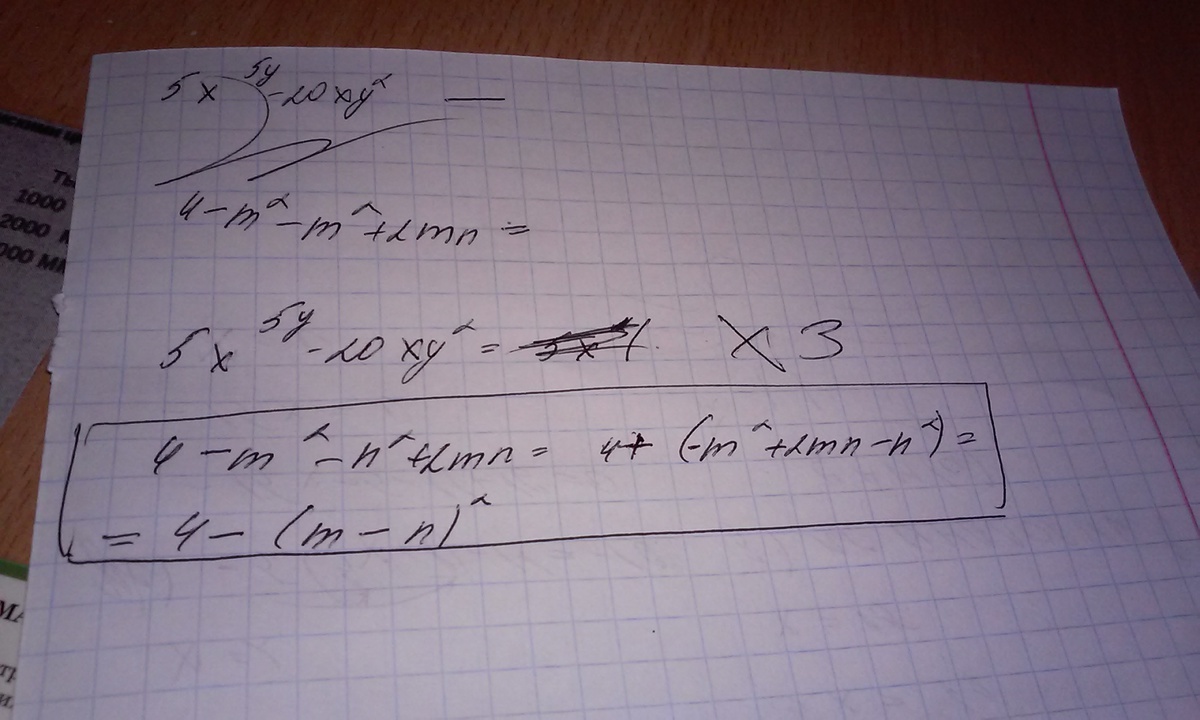 5x^5y - 20xy² —
4 - m² - m² + 2mn =
5x^5y - 20xy² = X З
4 - m² - n² + 2mn = 4 + (-m² + 2mn - n²) =
= 4 - (m - n)²
1000
2000
000 мм
МА